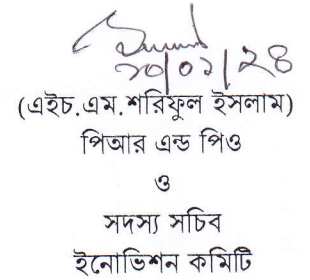 ২০/০১/২৪
(এইচ.এম.শরিফুল ইসলাম)
পিআর এন্ড পিও
ও
সদস্য সচিব
ইনোভিশন কমিটি